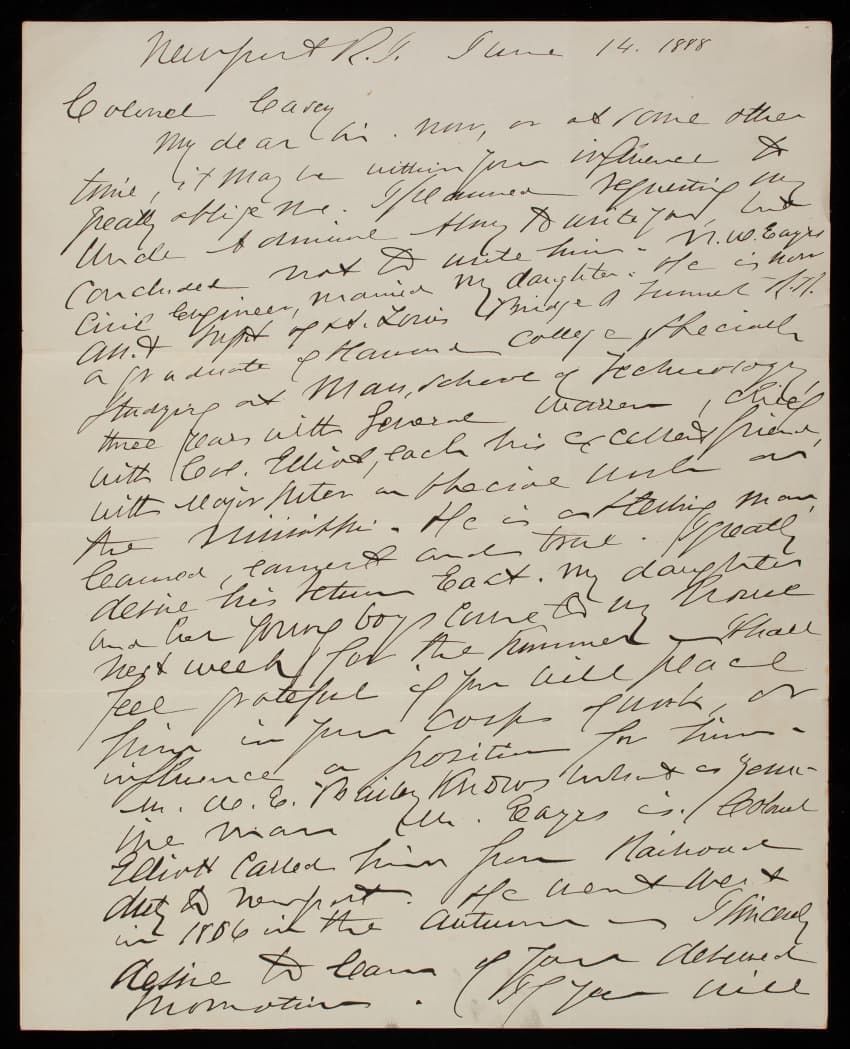 Newport R.I. June 14. 1888
Colonel Casey
My dear Sir. Now, or at some other
time, it may be within your influence to
greatly oblige me. I planned requesting my
Uncle Admiral Almy to write you, but
concluded not to write him - N.W. Eayrs
Civil Engineer, married my daughter. He is now
Ass.t Supt of St. Louis Bridge & Tunnel R.R.
a graduate of Harvard College specially
studying at Mass, School of Technology,
three years with General Warren, chief,
with Col. Elliot, each his excellent friend,
with Major Suter on special work on
the Mississippi - He is a sterling man,
learned, earnest and true. I greatly
desire his return East. My daughter
and her young boys come to my house
next week for the summer - I shall
feel grateful if you will place
him in your corps of work, or
influence a position for him -
M. W. E. Bailey knows what a genu-
ine man Mr. Eayrs is. Colonel
Elliott called him from Railroad
duty to Newport. He went West
in 1886 in the Autumn - I sincerely
desire to learn of your deserved
promotion. (If you will